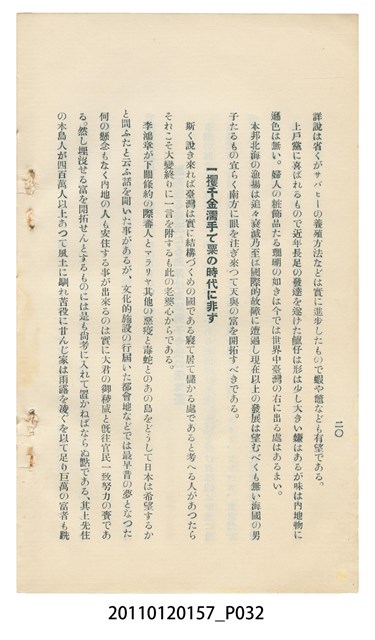 二〇
詳說は省くがサバヒーの養殖方法などは實に進步したもので蝦や鼈なども有望である。
上戸黨に喜ばれるもので近年長足の發達を遂けた鱲仔は形は少し大きい嫌はあるが味は內地物に
遜色は無い。婦人の粧飾品たる珊瑚の如きは今では世界中臺灣の右に出る處はあるまい。
本邦北海の漁場は追々衰滅乃至は國際的故障に遭遇し現在以上の發展は望むべくも無い海國の男
子たるもの宜らく南方に眼を注ぎ來つて天與の富を開拓すべきである。
一攫千金濡手で粟の時代に非ず
斯く說き來れば臺灣は實に結構づくめの國である寢て居て儲かる處であると考へる人があつたら
それこそ大變終りに一言を附するも此の老婆心からである。
李鴻章が下關條約の際審人とマラリヤ其他の惡疫と毒蛇とのあの島をどうして日本は希望するか
と問ふたと云ふ話を聞いた事があるが、文化的施設の行屆いた都會地などでは最早昔の夢となつた
何の懸念もなく內地の人も安住する事が出來るのは實に大君の御稜威と旣往官民一致努力の賚であ
る。然し埋沒せる富を開拓せんとするものには是も尙考に入れて置かねばならぬ點である、其上先住
の本島人が四百萬人以上あつて風土に馴れ苦役に甘んじ家は雨露を凌ぐを以て足り巨萬の富者も跣
20110120157_P032